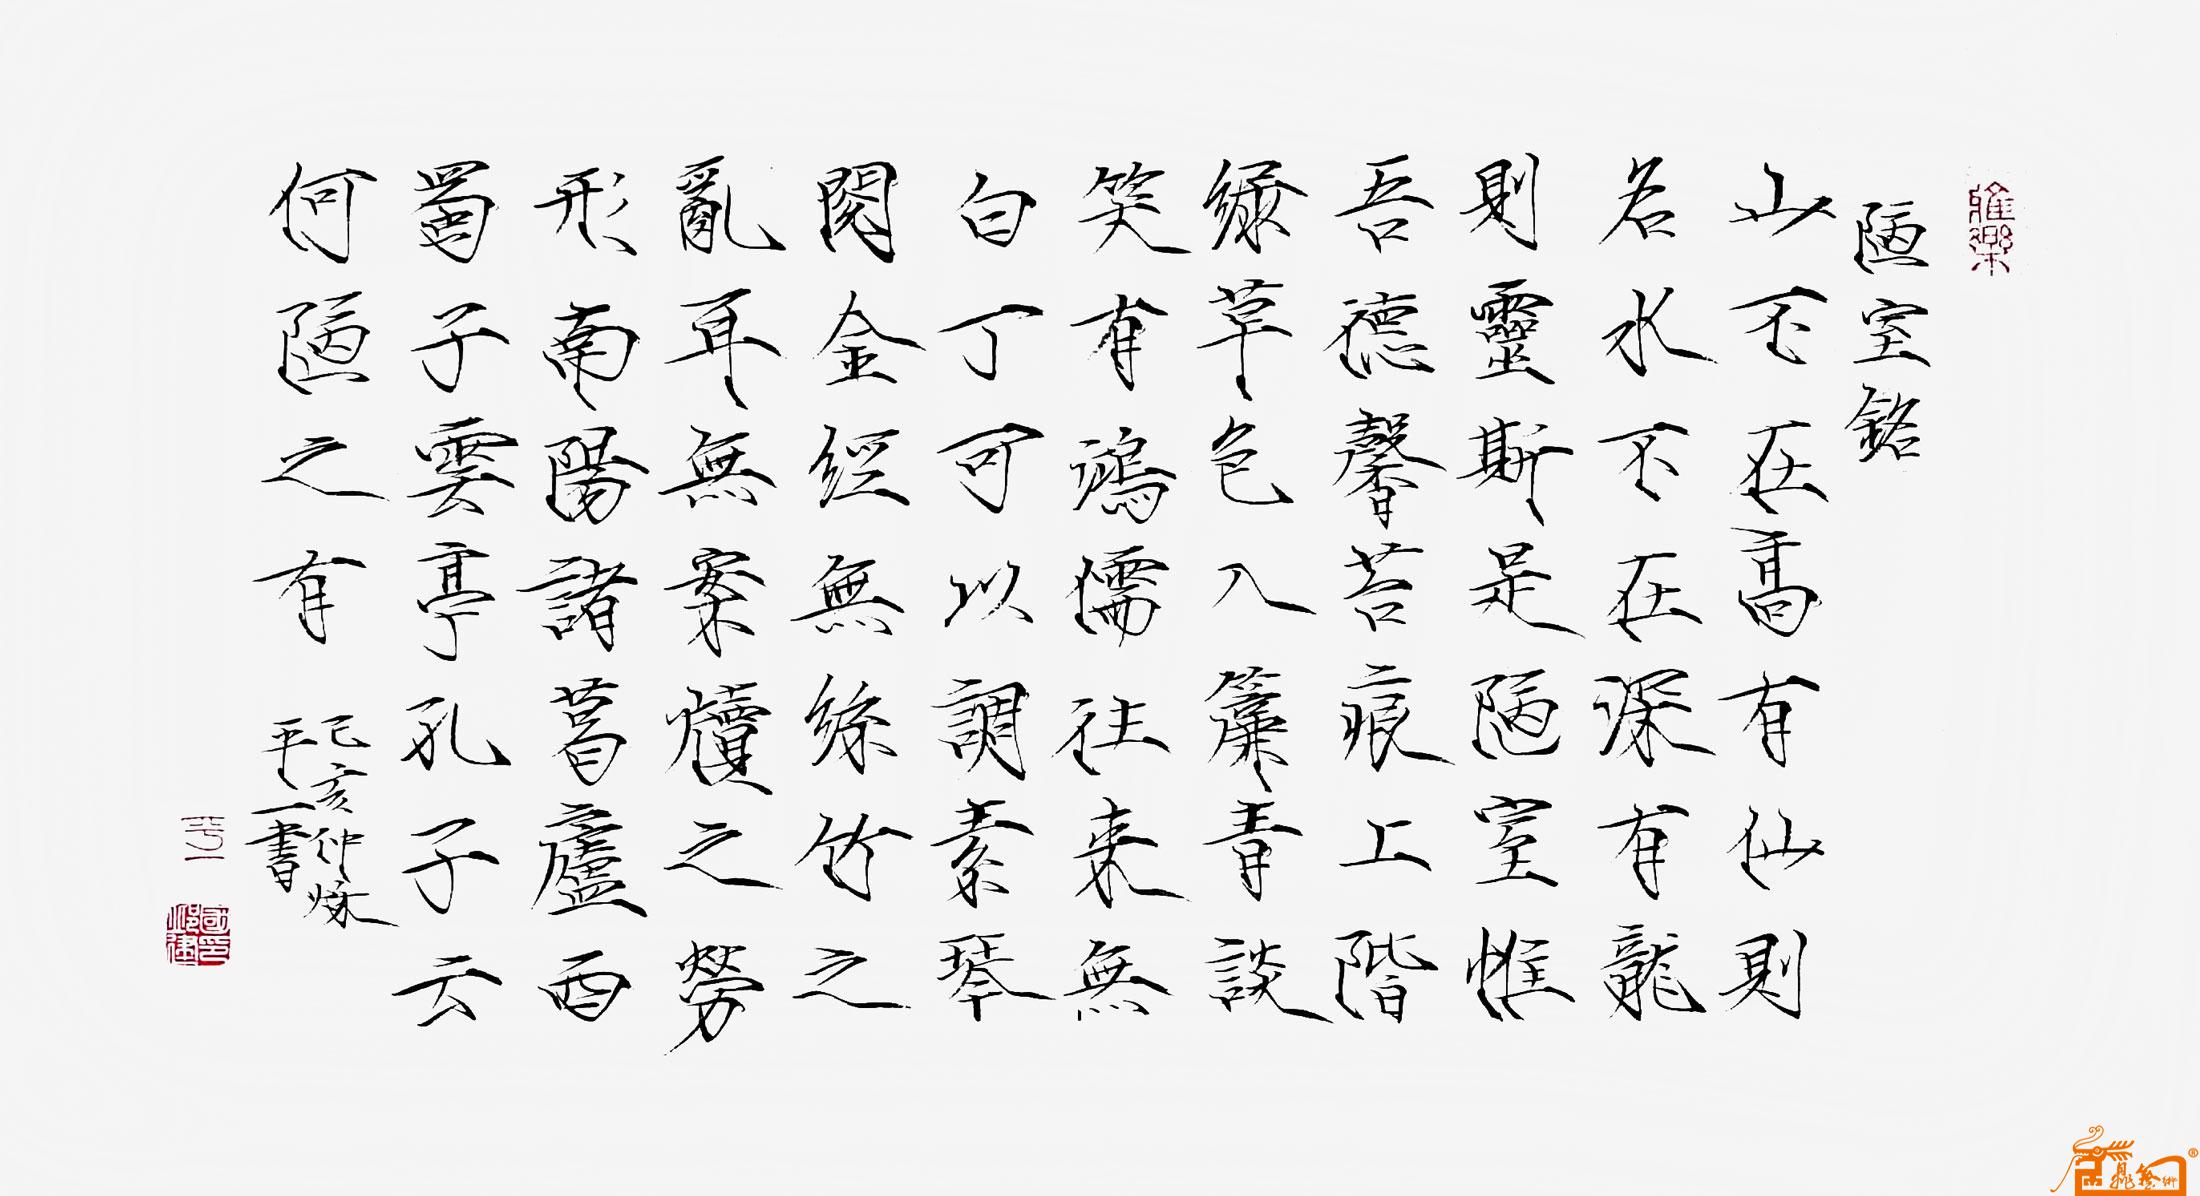 雅樂
陋室銘
山不在高有仙則
名水不在深有龍
則靈斯是陋室惟
吾德馨苔痕上階
綠草色入簾青談
笑有鴻儒往来無
白丁可以調素琴
閱金經無絲竹之
亂耳無案牘之勞
形南陽諸葛廬西
蜀子雲亭孔子云
何陋之有
己亥仲秋
平一書
平一